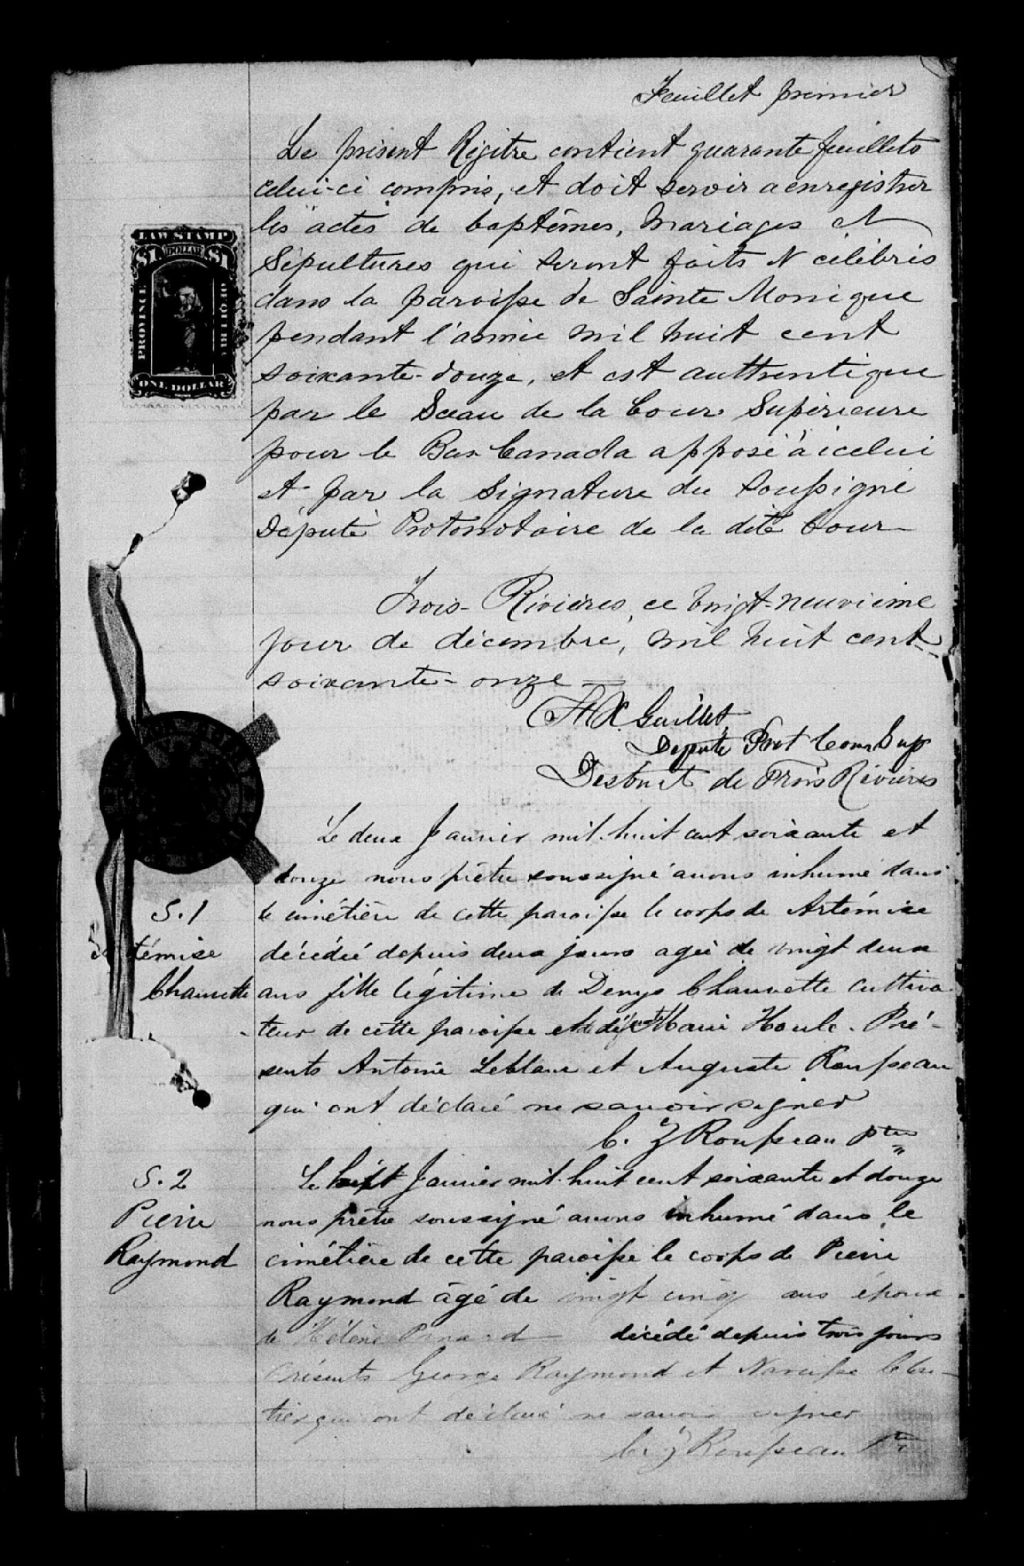 Feuillet premier
Le présent Régitre contient quarante feuillets
celui-ci compris, et doit servir a enregistrer
les actes de baptêmes, mariages et
Sépultures qui seront faits et célébrés
dans la paroisse de Sainte Monique
pendant l'année mil huit cent
soixante-douze, et est authentique
par le Sceau de la Cour Supérieure
pour le Bas Canada apposé à icelui
et par la signature du soussigné
Député Protonotaire de la dite Cour
LAW STAMP
$1 DOLLAR $1
PROVINCE OF QUEBEC
ONE DOLLAR
Trois-Rivières, ce vingt-neuvième
jour de décembre, mil huit cent
soixante-onze
Guillet
Député Prot Cour Sup
District de Trois Rivières
Le deux Janvier mil huit cent soixante et
douze nous prêtre soussigné avons inhumé dans
S.1
le cimétière de cette paroisse le corps de Artémise
témise
décédée depuis deux jours agée de vingt deux
Chauvette
ans fille légitime de Denys Chauvette cultiva-
teur de cette paroisse et de Marie Houle. Pré-
sents Antoine Leblanc et Auguste Rousseau
qui ont déclaré ne savoir signer
C. Z Rousseau ptre
S.2
Le Janvier mil huit cent soixante et douze
Pierre
nous prêtre soussigné avons inhumé dans le
Raymond
cimétière de cette paroisse le corps de Pierre
Raymond âgé de vingt cinq ans époux
de Hélène Pinard décédé depuis trois jours
Présents George Raymond et Narcisse
qui ont déclaré ne savoir signer
C. Z Rousseau Ptre